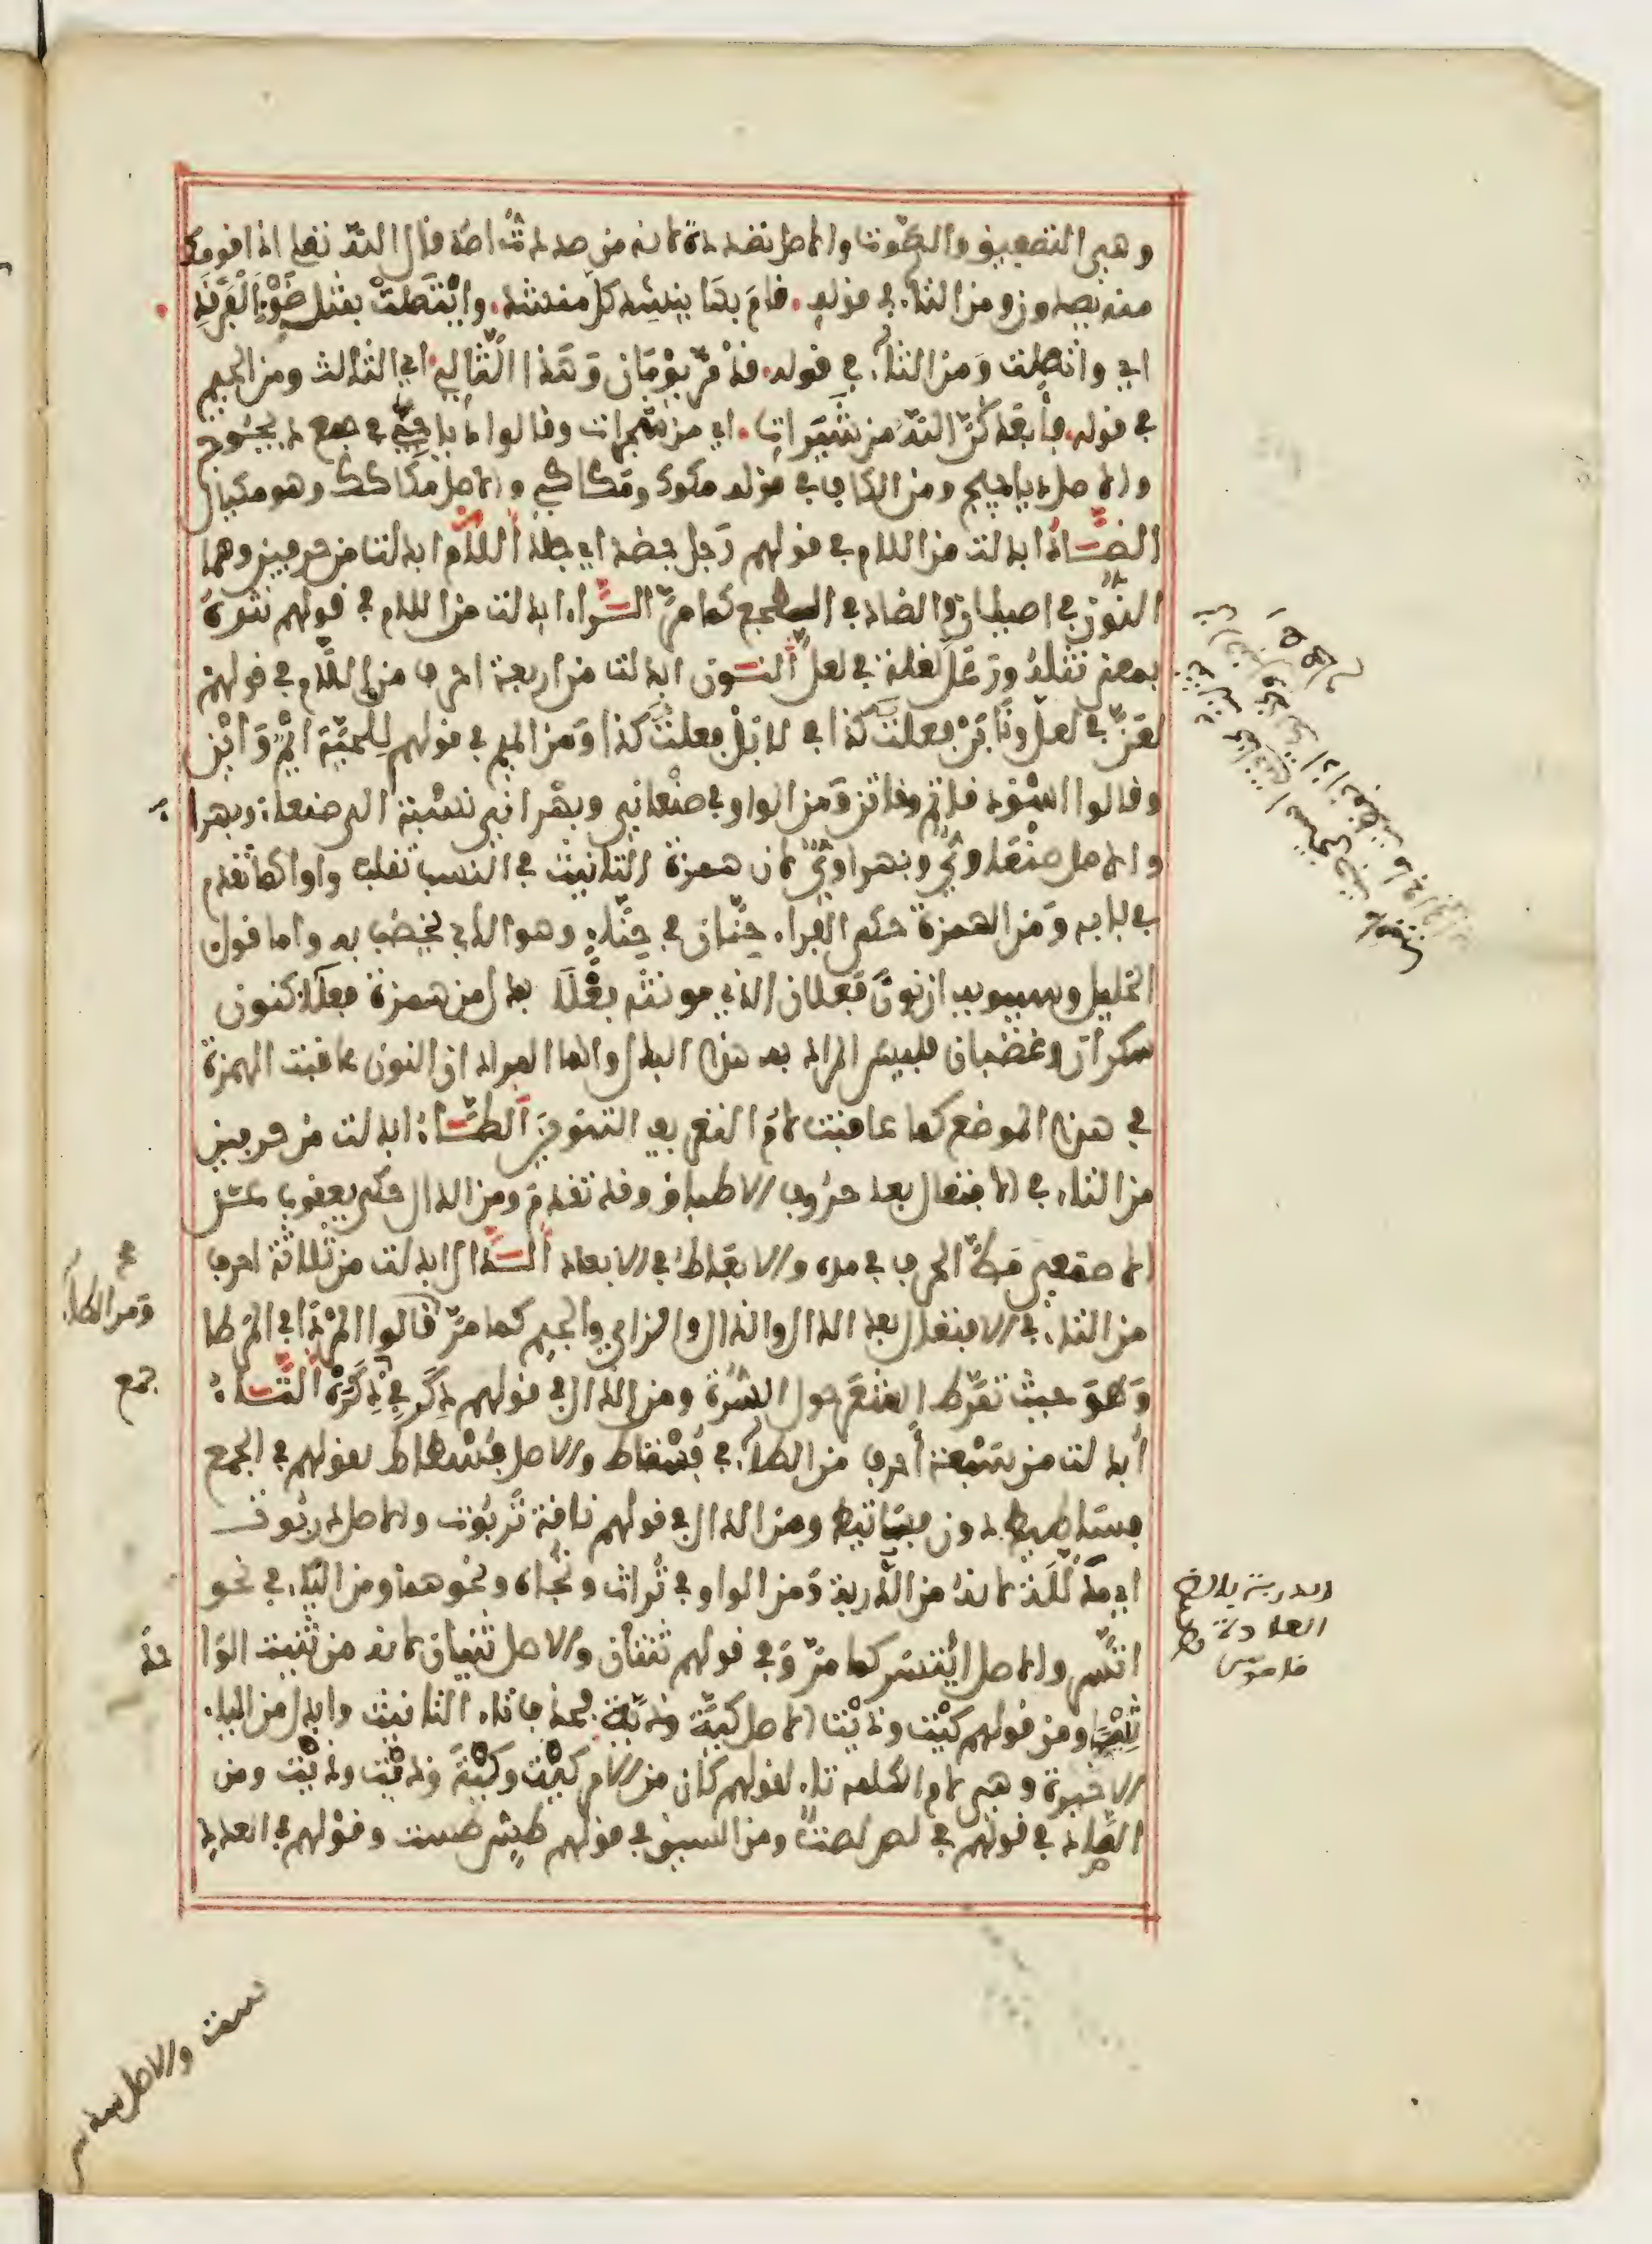 وهي التصفيق والصوت والاصل تصددة لانه من صددت اصد قال الله تعلى اذا قومك
منه يصدون ومن التاء في قوله. قام بها ينشد كل منشد. وايتصلت بمثل ضوء الفرقد
اي واتصلت ومن الثاء في قوله. قد مر يومان وهذا الثالي. اي الثالث ومن الجيم
في قوله. فابعدكن الله من شيرات. اي من شجرات وقالوا دياجي في جمع ديجوج
والاصل دياجيج ومن الكاف في قوله مكوك ومكاكي والاصل مكاكك وهو مكيال
الضاد ابدلت من اللام في قولهم رجل جضد اي جلد اللام ابدلت من حرفين وهما
النون في اصيلان والضاد في الطجع كما مر الراء ابدلت من اللام في قولهم نثرة
بمعنى نثلة ورعل لغة في لعل النون ابدلت من اربعة احرف من اللام في قولهم
لعن في لعل ونابن فعلت كذا اي لا بل فعلت كذا ومن الميم في قولهم للحية ايم واين
وقالوا اسود قاتم وقاتن ومن الواو في صنعاني وبهراني نسبة الى صنعاء وبهراء
والاصل صنعاوي وبهراوي لان همزة التانيث في النسب تقلب واوا كما تقدم
في بابه ومن الهمزة حكى الفراء حنان في حناء وهو الذي يخضب به واما قول
الخليل وسيبويه ان نون فعلان الذي مونثه فعلى بدل من همزة فعلاء كنون
سكران وغضبان فليس المراد به هذا البدل وانما المراد ان النون عاقبت الهمزة
في هذا الموضع كما عاقبت لام التعريف التنوين الطاء ابدلت من حرفين
من التاء في الافتعال بعد حروف الاطباق وقد تقدم ومن الدال حكى يعقوب عن
الاصمعي مط الحرف في مده والابعاط في الابعاد الدال ابدلت من ثلاثة احرف
من التاء في الافتعال بعد الدال والذال والزاي والجيم كما مر قالوا المردا اي المرطا
وهو حيث تمرط الشعر حول السرة ومن الذال في قولهم دكر في ذكرة التاء
ابدلت من سبعة احرف من الطاء في فستاط والاصل فسطاط لقولهم في الجمع
فساطيط دون فساتيط ومن الدال في قولهم ناقة تربوت والاصل دربوت
اي مذللة لانه من الدربة ومن الواو في تراث وتجاه ونحوهما ومن الياء في نحو
اتسر والاصل ايتسر كما مر وفي قولهم ثنتان والاصل ثنيان لانه من ثنيت الوا
حد
ثنيا ومن قولهم كيت وذيت الاصل كية وذية فحذفت تاء التانيث وابدل من الياء
الاخيرة وهي لام الكلمه تاء لقولهم كان من الامر كيت وكية وذيت وذيت ومن
الصاد في قولهم في لص لصت ومن السين في قولهم طس طست وقولهم في العدد
ومن الطاء
جمع
الدربة بالضم
العادة
قاموس
ست والاصل سدس